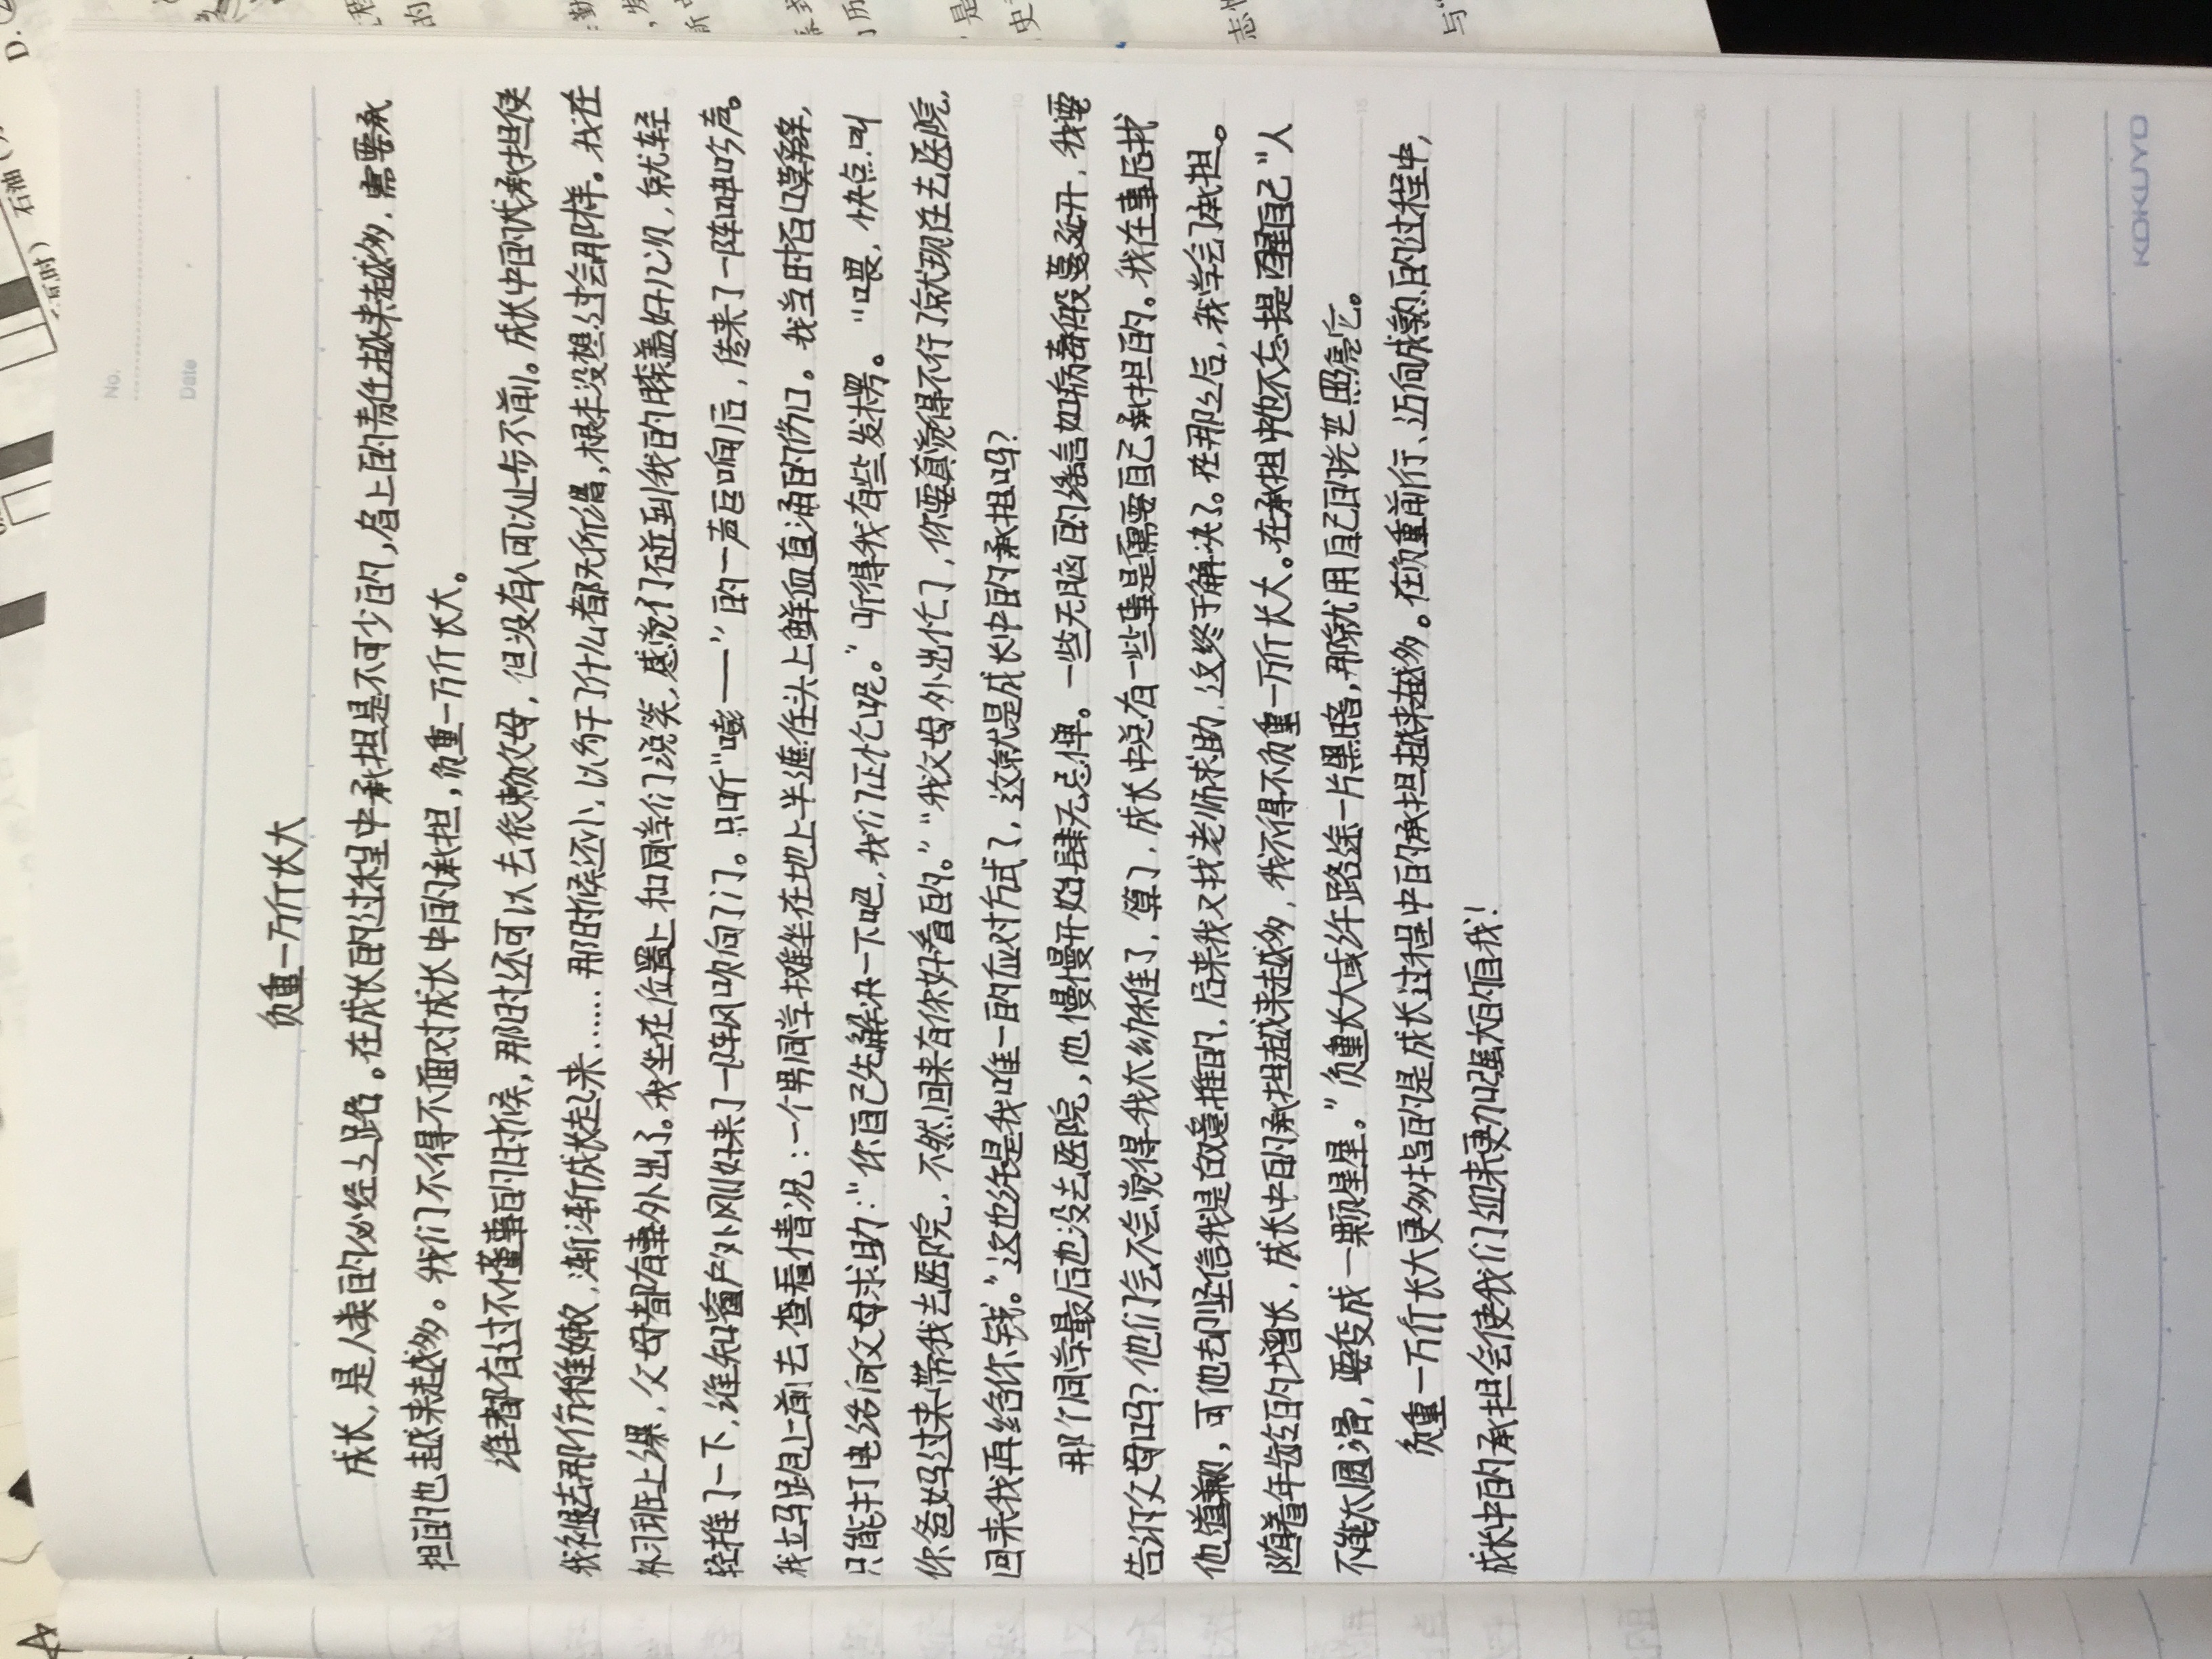 No.
Date
负重一万斤长大
成长,是人类的必经之路。在成长的过程中承担是不可少的,肩上的责任越来越多,需要承
担的也越来越多。我们不得不面对成长中的承担,负重一万斤长大。
谁都有过不懂事的时候,那时还可以去依赖父母,但没有人可以止步不前。成长中的承担使
我褪去那份稚嫩,渐渐成长起来……那时候还小,以为干了什么都无所谓,根本没想过会那样。我在
补习班上课,父母都有事外出了。我坐在位置上和同学们说笑,感觉门在碰到我的膝盖好几次,就轻
轻推了一下,谁知窗户外刚好来了一阵风吹向了门。只听“嘭——”的一声巨响后,传来了一阵呻吟声。
我立马跑上前去查看情况:一个男同学摊坐在地上半遮住头上鲜血直涌的伤口。我当时百口莫辩,
只能打电话向父母求助:“你自己先解决一下吧,我们正忙呢。”听得我有些发愣。“喂,快点叫
你爸妈过来带我去医院,不然回来有你好看的。”“我父母外出忙了,你要真觉得不行了就现在去医院,
回来我再给你钱。”这也许是我唯一的应对方式了,这就是成长中的承担吗?
那个同学最后也没去医院,他慢慢开始肆无忌惮。一些无脑的谣言如病毒般蔓延开,我要
告诉父母吗?他们会不会觉得我太幼稚了,算了,成长中总有一些事是需要自己承担的。我在事后找
他道歉,可他却坚信我是故意推的,后来我又找老师求助,这终于解决了。在那之后,我学会了承担。
随着年龄的增长,成长中的承担越来越多,我不得不负重一万斤长大。在承担中也不忘提醒自己“人
不能太圆滑,要变成一颗星星。”负重长大或许路途一片黑暗,那就用自己的光芒照亮它。
负重一万斤长大更多指的是成长过程中的承担越来越多。在负重前行、迈向成熟的过程中,
成长中的承担会使我们迎来更加强大的自我!
KOKUYO